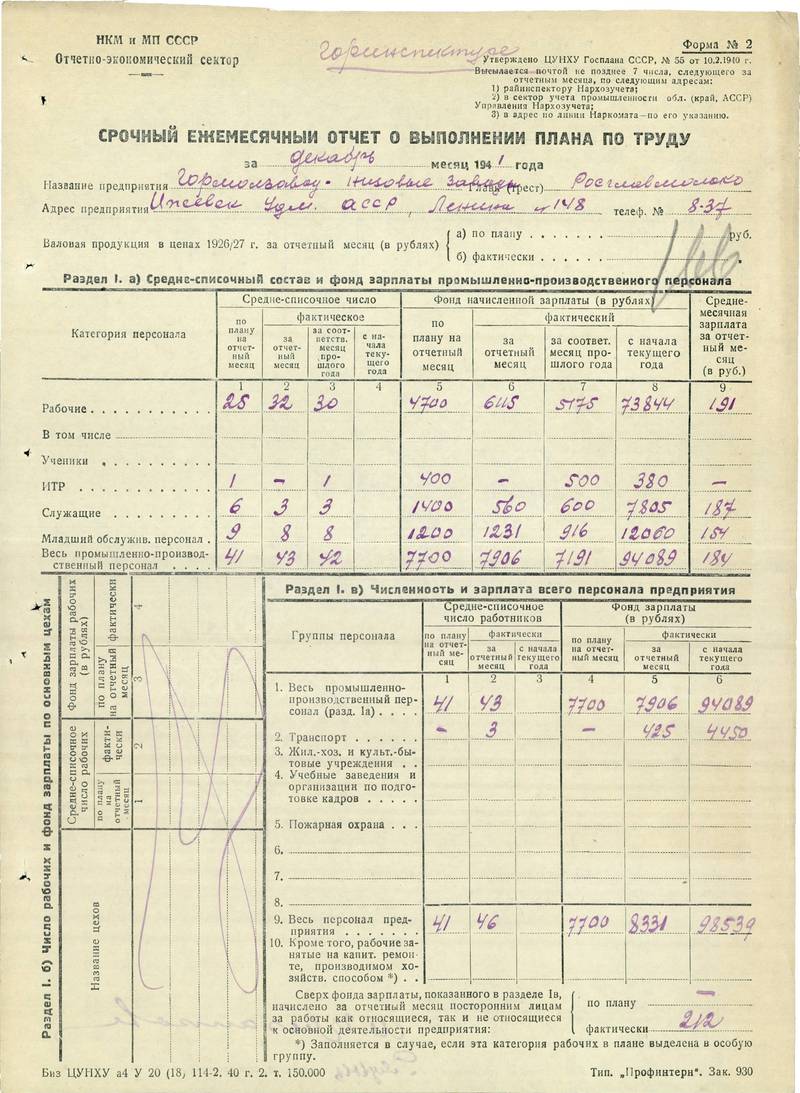 НКМ и МП СССР
Отчетно-экономический сектор
Горинспектуре
Форма № 2
Утверждено ЦУНХУ Госплана СССР, № 55 от 10.2.1940 г.
Высылается почтой не позднее 7 числа, следующего за
отчетным месяца, по следующим адресам:
1) райинспектору Нархозучета;
2) в сектор учета промышленности обл. (край, АССР)
Управления Нархозучета;
3) в адрес по линии Наркомата—по его указанию.
СРОЧНЫЙ ЕЖЕМЕСЯЧНЫЙ ОТЧЕТ О ВЫПОЛНЕНИИ ПЛАНА ПО ТРУДУ
за декабрь месяц 1941 года
Название предприятия Гормолзавод - низовые заводы (трест) Росглавмолоко
Адрес предприятия Ижевск Удм. АССР, Ленина № 148 телеф. № 8-37
Валовая продукция в ценах 1926/27 г. за отчетный месяц (в рублях)
а) по плану руб.
б) фактически
Раздел I. а) Средне-списочный состав и фонд зарплаты промышленно-производственного персонала
Категория персонала
Средне-списочное число
Фонд начисленной зарплаты (в рублях)
Средне-месячная зарплата за отчетный месяц (в руб.)
по плану на отчетный месяц
фактическое
за отчетный месяц
за соответств. месяц прошлого года
с начала текущего года
по плану на отчетный месяц
фактический
за отчетный месяц
за соответ. месяц прошлого года
с начала текущего года
1 2 3 4 5 6 7 8 9
Рабочие 25 32 30 4700 6115 5175 73844 191
В том числе
Ученики „
ИТР 1 – 1 400 – 500 380 –
Служащие 6 3 3 1400 560 600 7805 187
Младший обслужив. персонал 9 8 8 1200 1231 916 12060 154
Весь промышленно-производственный персонал 41 43 42 7700 7906 7191 94089 184
Раздел I. б) Число рабочих и фонд зарплаты по основным цехам
Название цехов
Средне-списочное число рабочих
по плану на отчетный месяц
фактически
Фонд зарплаты рабочих (в рублях)
по плану на отчетный месяц
фактически
1 2 3 4
Раздел I. в) Численность и зарплата всего персонала предприятия
Группы персонала
Средне-списочное число работников
Фонд зарплаты (в рублях)
по плану на отчетный месяц
фактически
за отчетный месяц
с начала текущего года
по плану на отчетный месяц
фактически
за отчетный месяц
с начала текущего года
1 2 3 4 5 6
1. Весь промышленно-
производственный пер-
сонал (разд. 1а) 41 43 7700 7906 94089
2. Транспорт – 3 – 425 4450
3. Жил.-хоз. и культ.-бы-
товые учреждения
4. Учебные заведения и
организации по подго-
товке кадров
5. Пожарная охрана
6.
7.
8.
9. Весь персонал пред-
приятия 41 46 7700 8331 98539
10. Кроме того, рабочие за-
нятые на капит. ремон-
те, производимом хо-
зяйств. способом *)
Сверх фонда зарплаты, показанного в разделе Iв,
начислено за отчетный месяц посторонним лицам
за работы как относящиеся, так и не относящиеся
к основной деятельности предприятия:
по плану –
фактически 212
*) Заполняется в случае, если эта категория рабочих в плане выделена в особую
группу.
Биз ЦУНХУ а4 У 20 (18) 114-2. 40 г. 2. т. 150.000
Тип. „Профинтерн“. Зак. 930